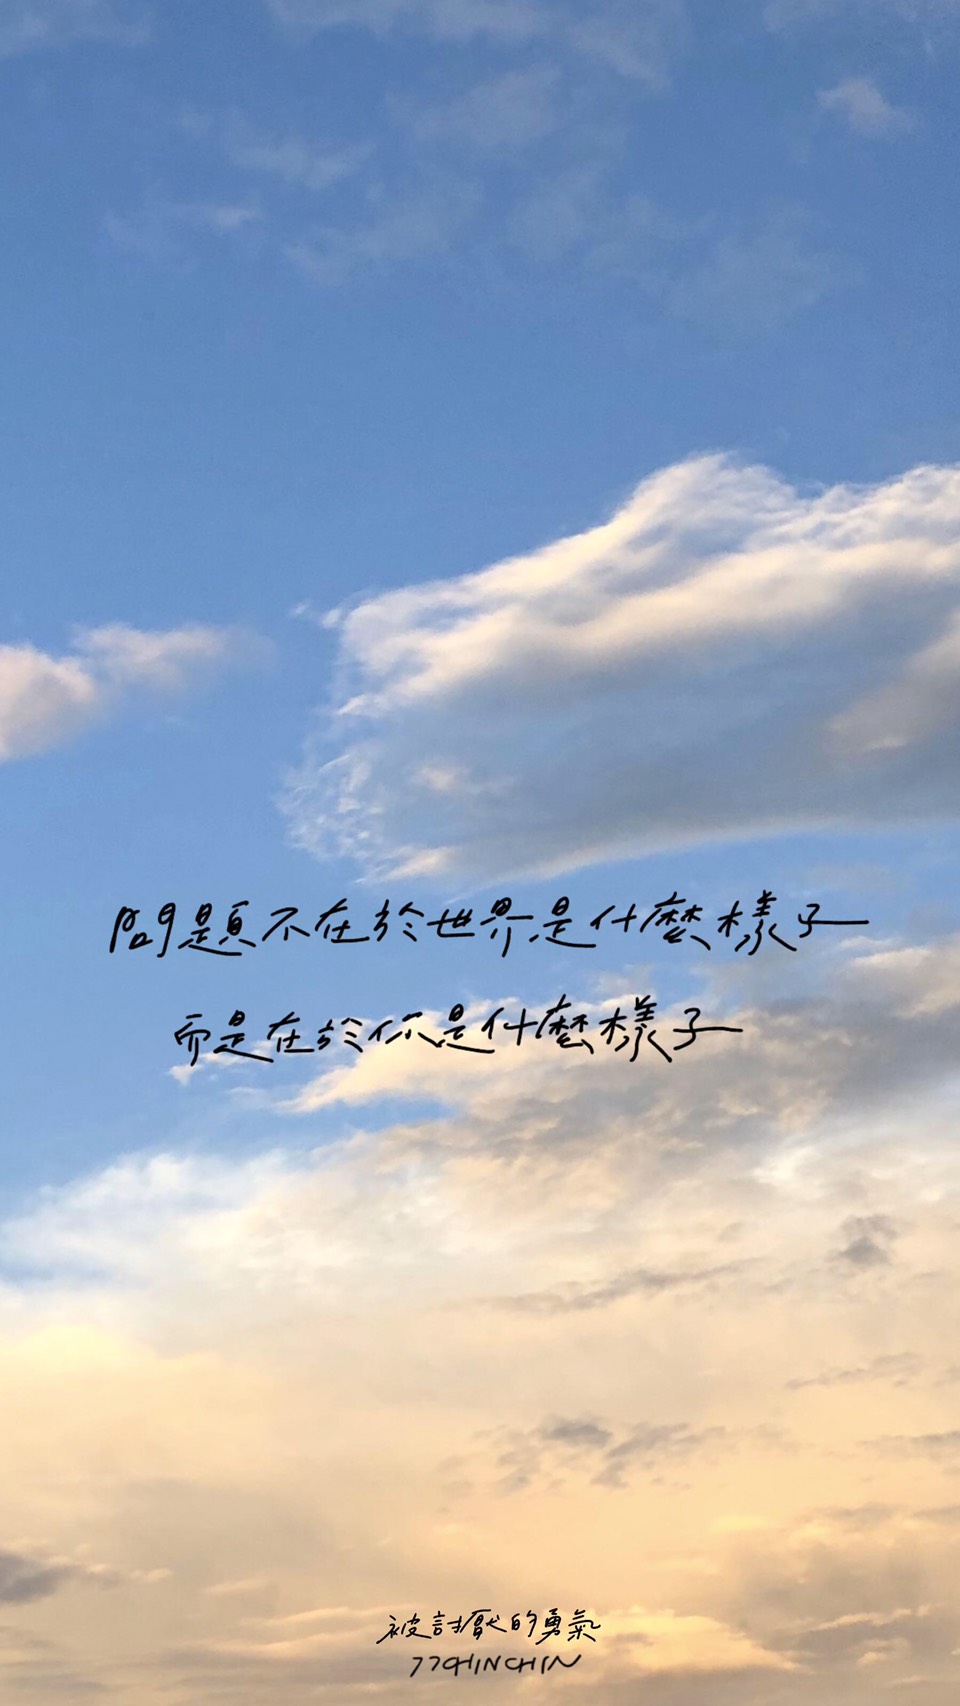 問題不在於世界是什麼樣子
而是在於你是什麼樣子
被討厭的勇氣
77CHINCHIN